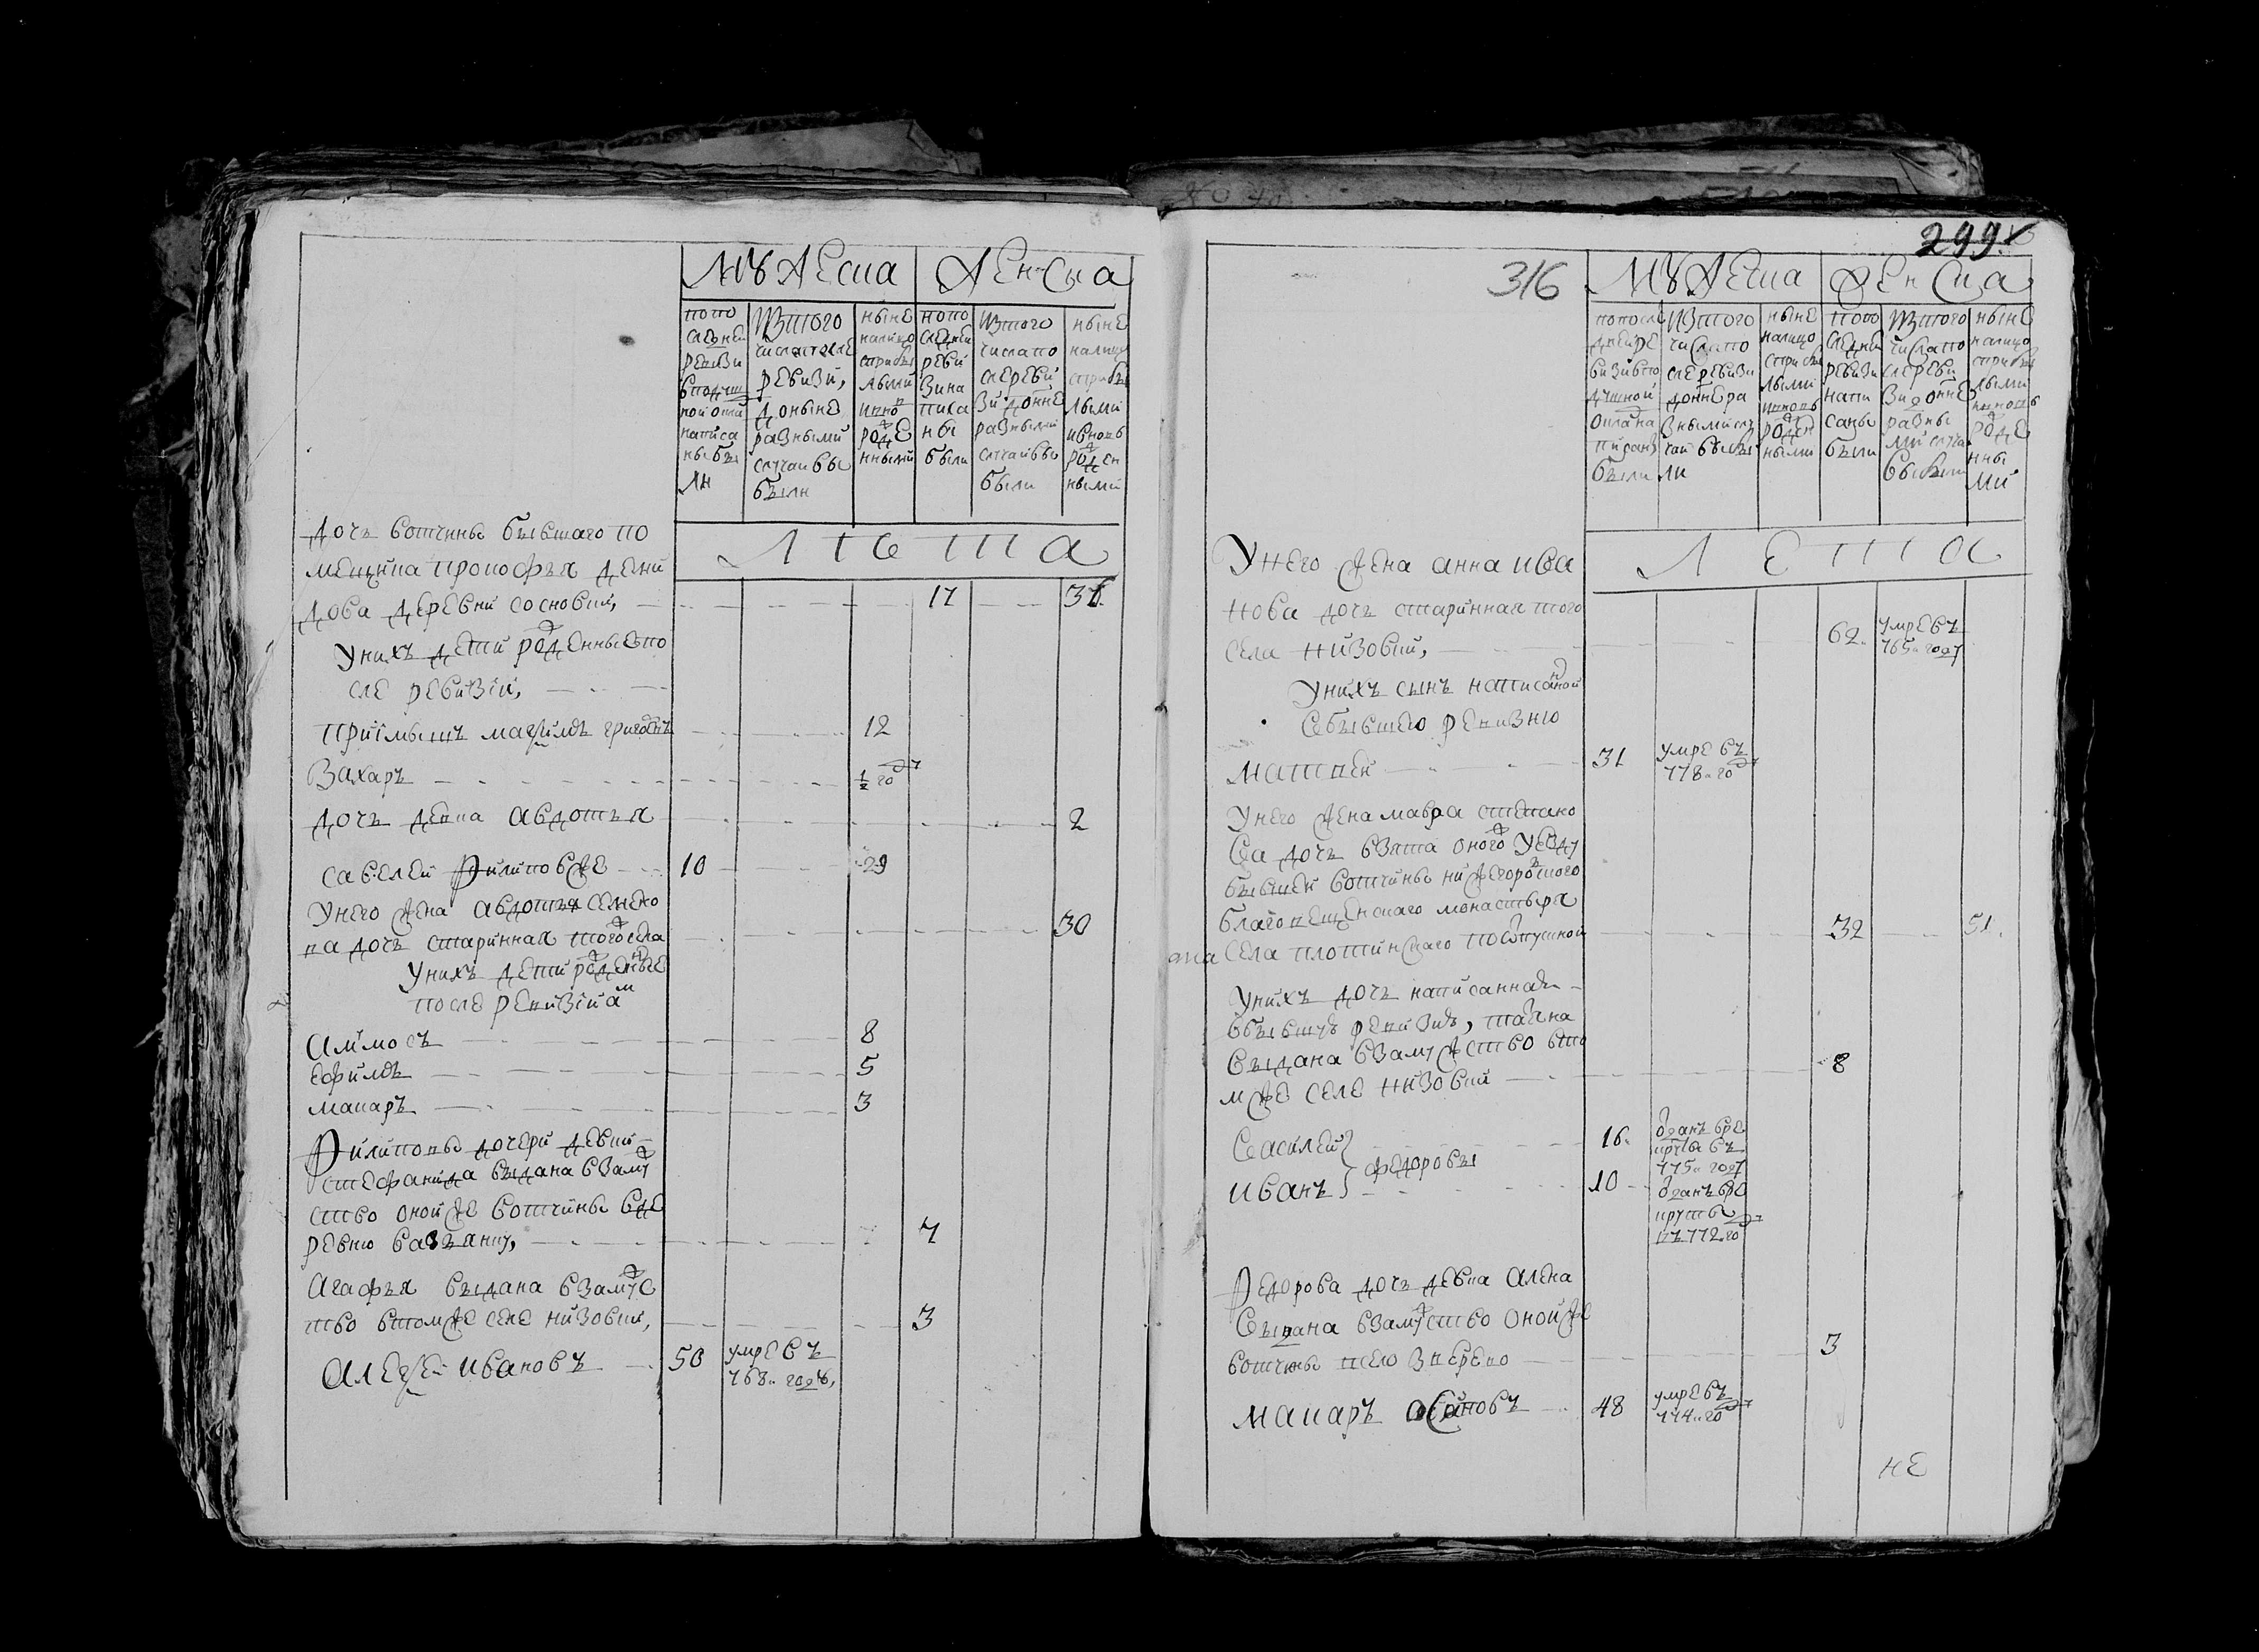 мужеска женска
попо следней ревизи вподуш ной окла написа ны бы ли
Изтого числапосле ревизи, доныне разными случаи вы были
ныне налицо сприбы лыми ивно рожде нными
попо следней реви зии напи са ны были
Изтого числапо слереви зи донне разными случаи вы были
ныне налицо сприбы лыми ивновь рожден ными
лета
дочь вотчины бывшаго по
мещика прокофья деми
дова деревни сосновки, 17 37
Унихъ дети рожденныепо
сле ревизии,
приимышъ максимъ григорьевъ 12
Захаръ ½ году
дочь девка авдотья 2
савелей филиповже 10 29
Унего жена авдотья семено
ва дочь старинная тогожсела 30
Унихъ дети рожденные
после ревизии
Аммосъ 8
ефимъ 5
макаръ 3
Филиповы дочери девки
стефанида выдана взамуж
ство онойже вотчины вде
ревню 7
Агафья выдана взамужс
тво втомже селе низовки, 3
Алексей ивановъ 50 умре въ
768.. годе,
299
316
мужеска женска
попосле днейре визивпо душной окла на писаны были
Изтого числапо слеревизи донне ра знымислу чаи выбы ли
ныне налицо сприбы лыми ивновь рожден ными
попо следней ревизи напи саны были
Изтого числапо слереви зи донне разны ми случаи выбыли
ныне налицо сприбы лыми ивновь рожде нны ми
лета
Унего жена анна ива
нова дочь старинная того
села низовки, 62. умре въ
765.. году
Унихъ сынъ написаной
вбывшею ревизию
матвей 31 умре въ
778.. году
Унего жена мавра степано
ва дочь взята оногож уезду
бывшей вотчины нижегородского
благовещенскаго монастыря
села плотинскаго поотпускной 32 51.
Унихъ дочь написанная
вбывшую ревизию, татьяна
выдана взамужство вто
мже селе низовки 8
василей } 16. отданъ вре
круты въ
775.. году
федоровы
иванъ } 10 отданъ вре
круты
въ 772.. году
Федорова дочь девка Алена
выдана взамужство онойже
вотчины 3
макаръ осиповъ 48 умре въ
774.. году
не